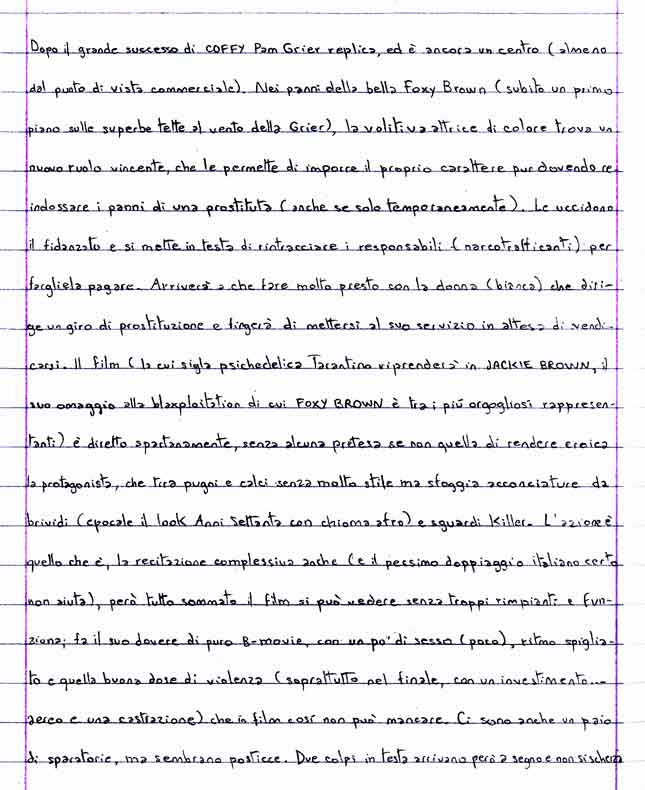 Dopo il grande successo di COFFY Pam Grier replica, ed è ancora un centro (almeno
dal punto di vista commerciale). Nei panni della bella Foxy Brown (subito un primo
piano sulle superbe tette al vento della Grier), la volitiva attrice di colore trova un
nuovo ruolo vincente, che le permette di imporre il proprio carattere pur dovendo re
indossare i panni di una prostituta (anche se solo temporaneamente). Le uccidono
il fidanzato e si mette in testa di rintracciare i responsabili (narcotrafficanti) per
fargliela pagare. Arriverà a che fare molto presto con la donna (bianca) che diri-
ge un giro di prostituzione e fingerà di mettersi al suo servizio in attesa di vendi-
carsi. Il film (la cui sigla psichedelica Tarantino riprenderà in JACKIE BROWN, il
suo omaggio alla blaxploitation di cui FOXY BROWN è tra i più orgogliosi rappresen-
tanti) è diretto spartanamente, senza alcuna pretesa se non quella di rendere eroica
la protagonista, che tira pugni e calci senza molto stile ma sfoggia acconciature da
brividi (epocale il look Anni Settanta con chioma afro) e sguardi killer. L'azione è
quello che è, la recitazione complessiva anche (e il pessimo doppiaggio italiano certo
non aiuta), però tutto sommato il film si può vedere senza troppi rimpianti e fun-
ziona; fa il suo dovere di puro B-movie, con un po' di sesso (poco), ritmo spiglia-
to e quella buona dose di violenza (soprattutto nel finale, con un investimento...
aereo e una castrazione) che in film così non può mancare. Ci sono anche un paio
di sparatorie, ma sembrano posticce. Due colpi in testa arrivano però a segno e non si scherza